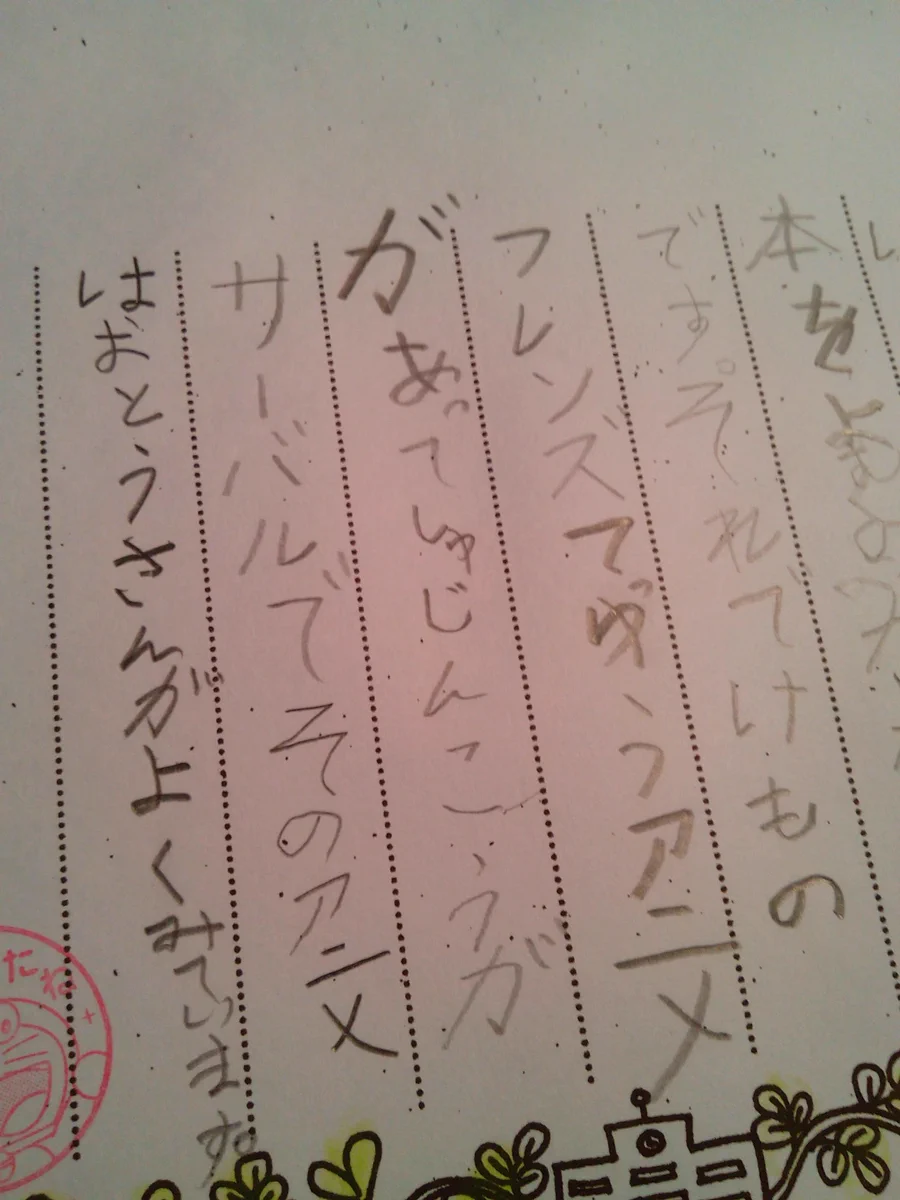 本を
です。それでけもの
フレンズてゆうアニメ
があってしゅじんこうが
サーバルでそのアニメ
はおとうさんがよくみています。
たね